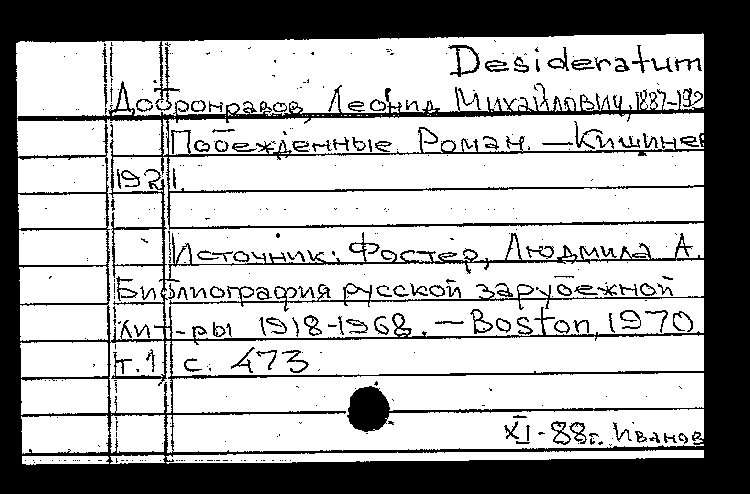 Desideratum
Добронравов, Леонид Михайлович, 1887-192
Побежденные. Роман. — Кишинев
1921.
Источник: Фостер, Людмила А.
Библиография русской зарубежной
лит-ры 1918-1968. — Boston, 1970.
т. 1, с. 473
XI-88г. Иванов